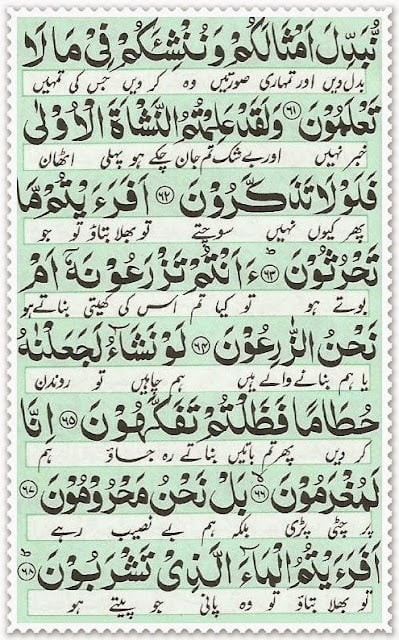 نُّبَدِّلَ اَمْثَالَكُمْ وَنُنْشِئَكُمْ فِیْ مَا لَا
بدل دیں اور تمہاری صورتیں وہ کر دیں جس کی تمہیں
تَعْلَمُوْنَ ﴿۶۱﴾ وَلَقَدْ عَلِمْتُمُ النَّشْاَةَ الْاُوْلٰی
خبر نہیں اور بے شک تم جان چکے ہو پہلی اٹھان
فَلَوْ لَا تَذَكَّرُوْنَ ﴿۶۲﴾ اَفَرَءَیْتُمْ مَّا
پھر کیوں نہیں سوچتے تو بھلا بتاؤ تو جو
تَحْرُثُوْنَ ﴿۶۳﴾ ءَاَنْتُمْ تَزْرَعُوْنَهٗۤ اَمْ
بوتے ہو تو کیا تم اس کی کھیتی بناتے ہو
نَحْنُ الزّٰرِعُوْنَ ﴿۶۴﴾ لَوْ نَشَآءُ لَجَعَلْنٰهُ
یا ہم بنانے والے ہیں ہم چاہیں تو روندن
حُطَامًا فَظَلْتُمْ تَفَكَّهُوْنَ ﴿۶۵﴾ اِنَّا
کر دیں پھر تم باتیں بناتے رہ جاؤ ہم
لَمُغْرَمُوْنَ ﴿۶۶﴾ بَلْ نَحْنُ مَحْرُوْمُوْنَ ﴿۶۷﴾
پر چٹی پڑی بلکہ ہم بے نصیب رہے
اَفَرَءَیْتُمُ الْمَآءَ الَّذِیْ تَشْرَبُوْنَ ﴿۶۸﴾
تو بھلا بتاؤ تو وہ پانی جو پیتے ہو